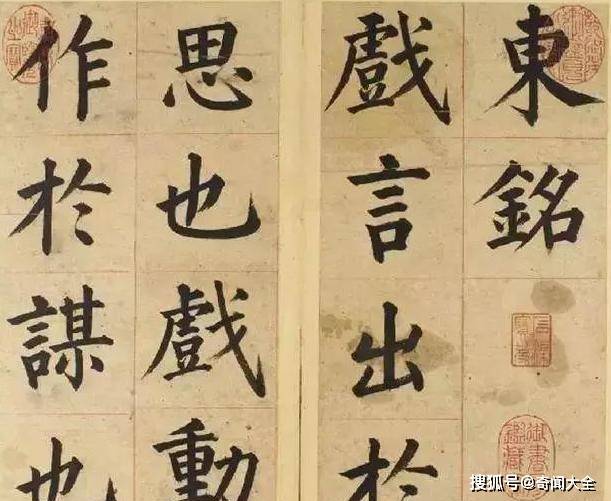 東銘
戲言出於
思也戲動
作於謀也
搜狐号@奇闻大全